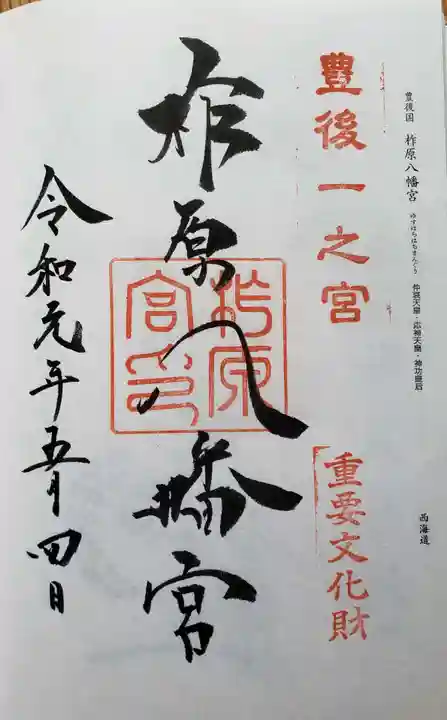 豊後国 柞原八幡宮 ゆすはらはちまんぐう 仲哀天皇・応神天皇・神功皇后
西海道
豊後一之宮
重要文化財
柞原八幡宮
柞原
宮印
令和元年五月四日